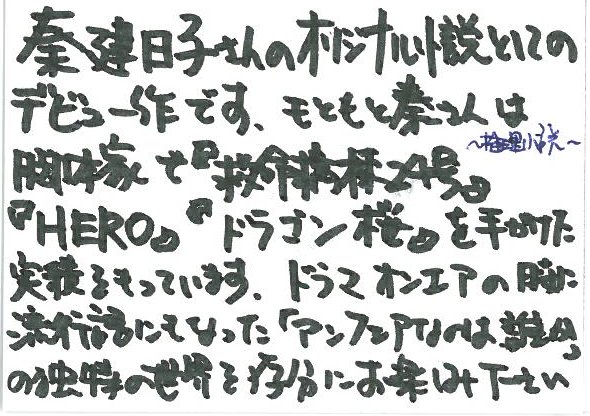 秦建日子さんのオリジナル小説としての
デビュー作です、もともと秦さんは
〜推理小説〜
脚本家で『救命病棟24号』
『HERO』『ドラゴン桜』を手がけた
実績をもっています。ドラマオンエアの際に
流行語にもなった「アンフェアなのは誰か」
の独特の世界を存分にお楽しみ下さい